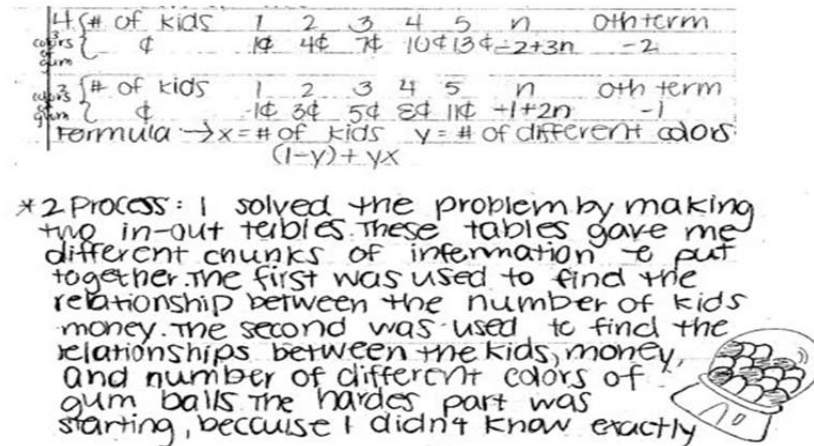 4 # of kids 1 2 3 4 5 n 0th term
3 colors of gum ¢ 1¢ 4¢ 7¢ 10¢ 13¢ -2+3n -2
# of kids 1 2 3 4 5 n 0th term
colors of gum ¢ 1¢ 3¢ 5¢ 8¢ 11¢ +1+2n -1
Formula → x = # of kids y = # of different colors
(1-y) + yx
*2 Process: I solved the problem by making
two in-out tables. These tables gave me
different chunks of information to put
together. The first was used to find the
relationship between the number of kids
money. The second was used to find the
relationships between the kids, money,
and number of different colors of
gum balls. The hardes part was
starting, because I didn't know exactly